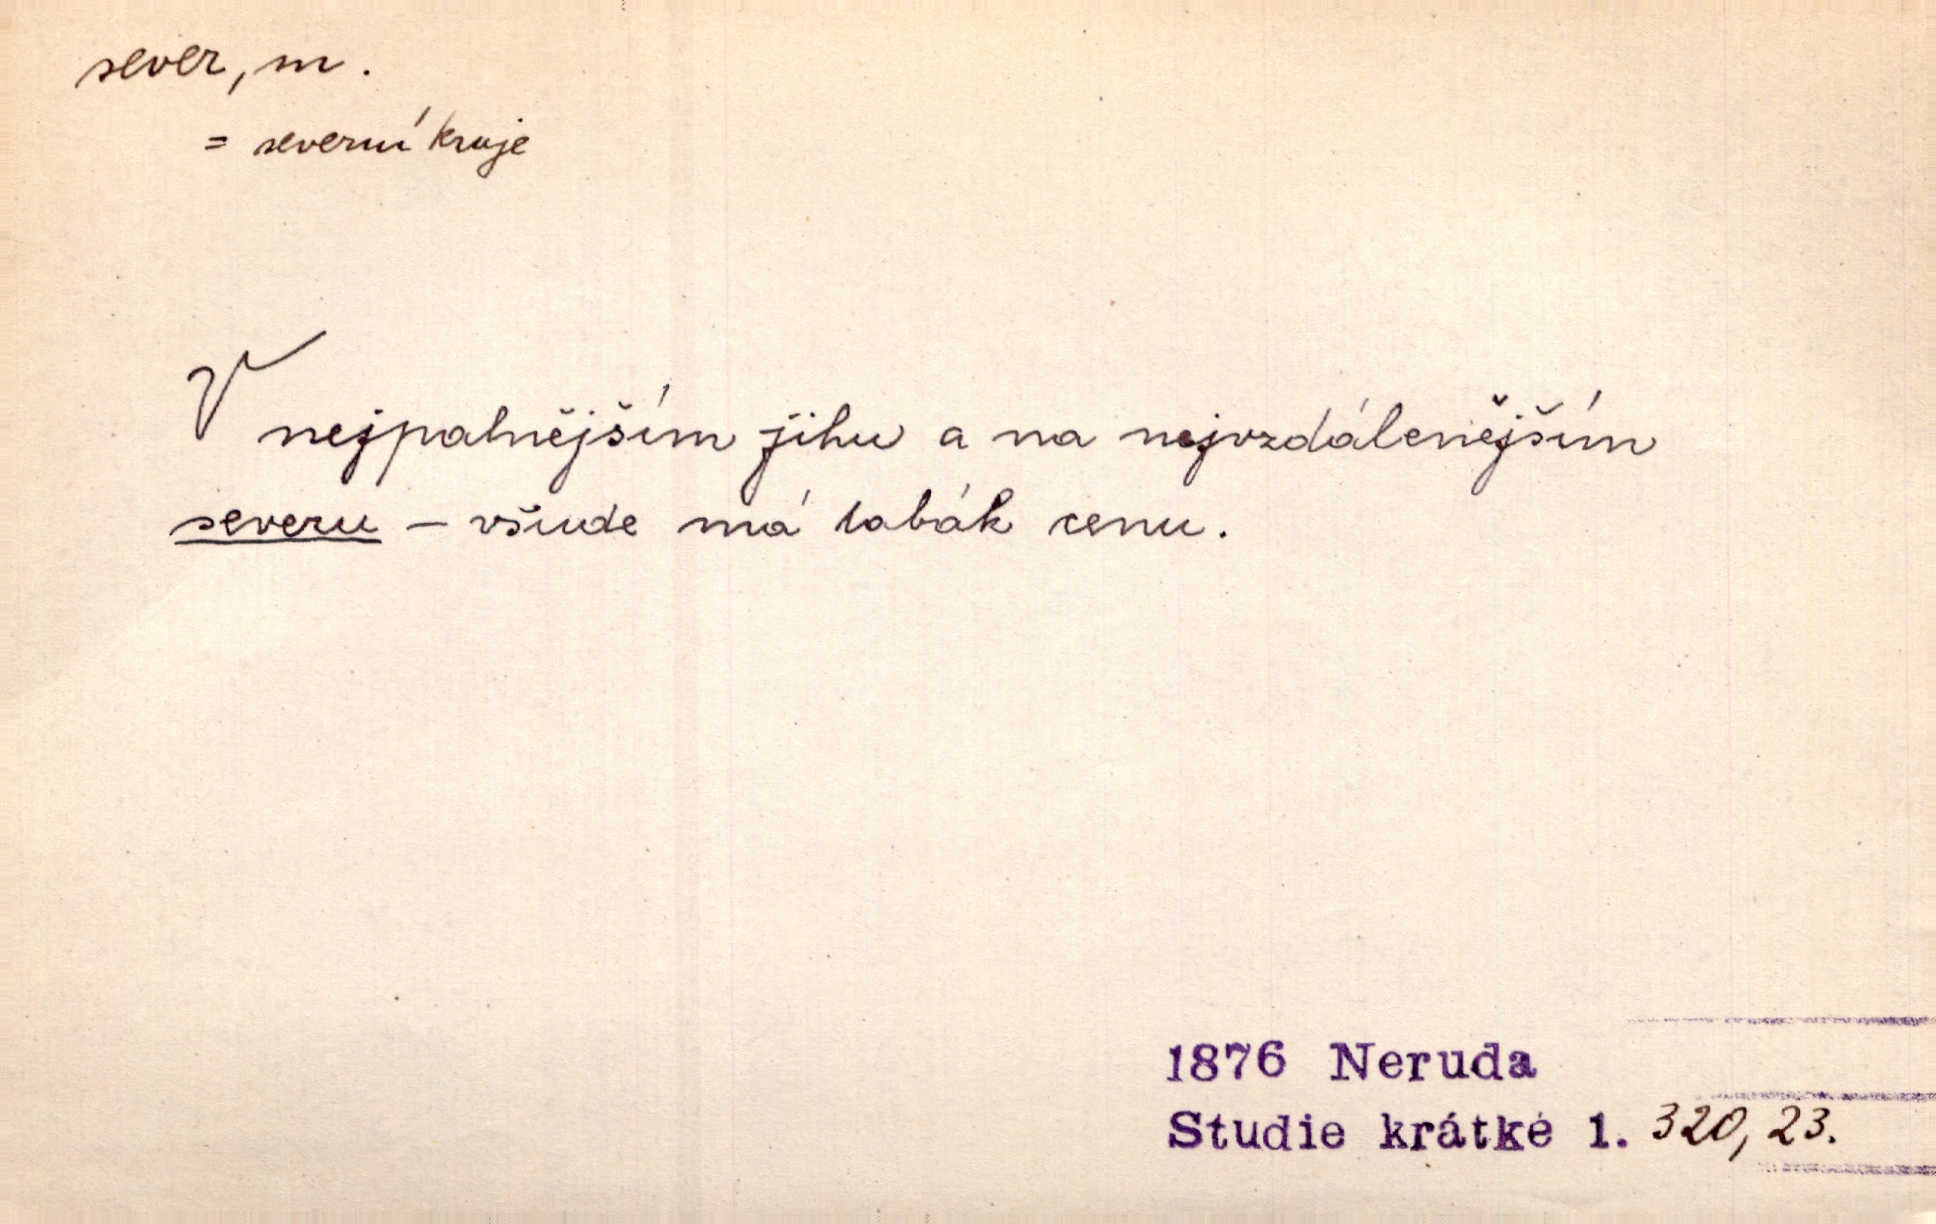 sever, m.
= severní kraje
V nejpalnějším jihu a na nejvzdálenějším
severu – všude má tabák cenu.
1876 Neruda
Studie krátké 1. 320, 23.